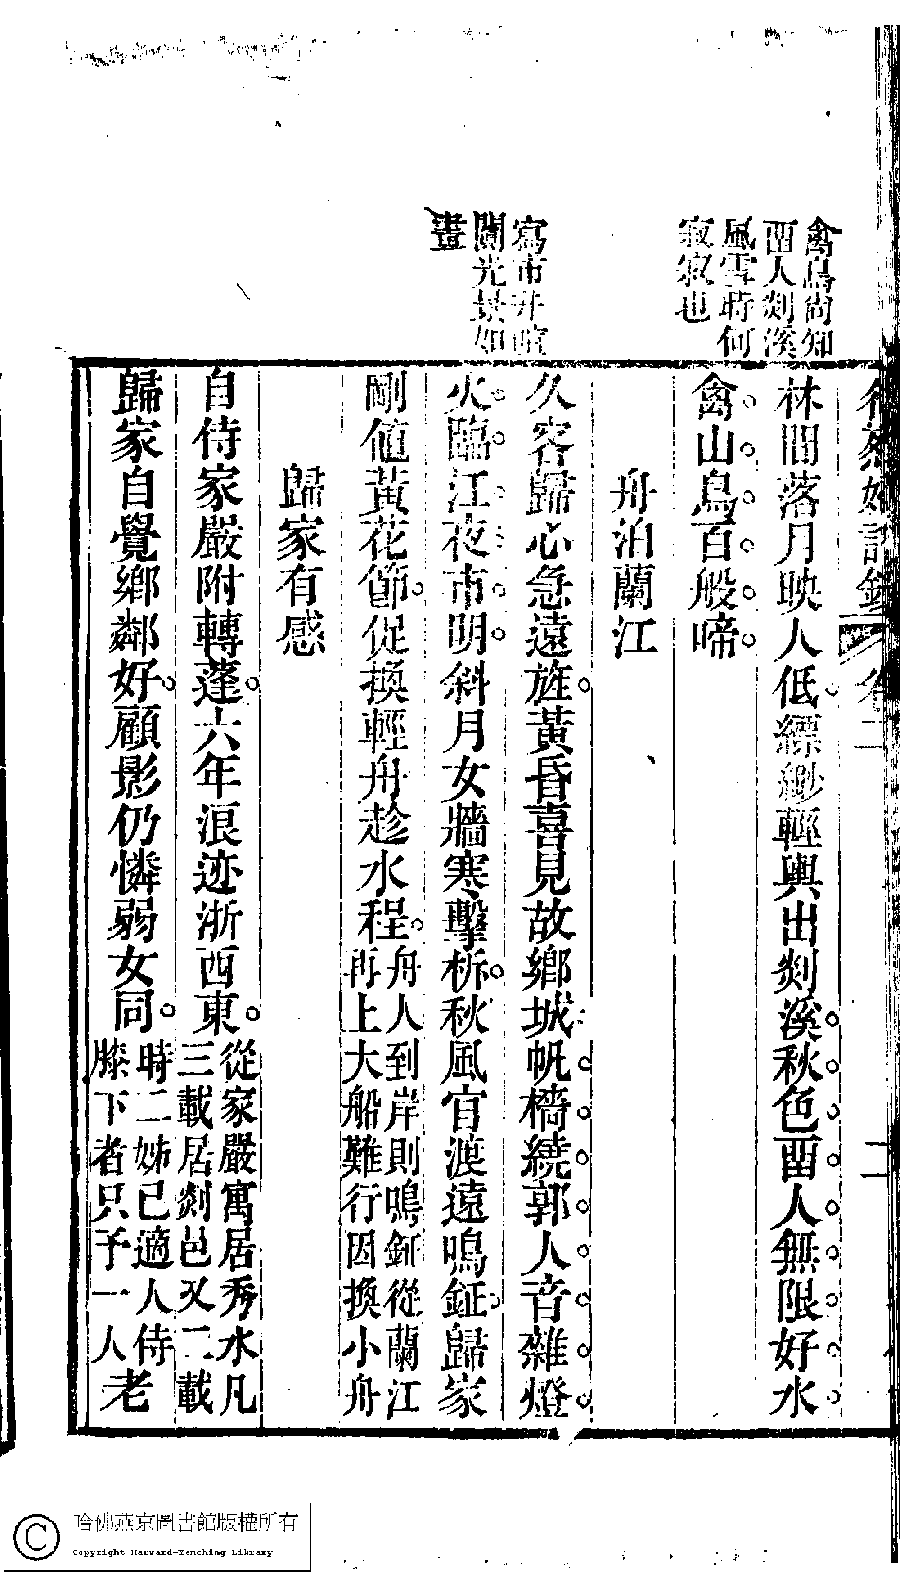 禽鳥尚知
畱人剡溪
風雪時何
寂寂也
寫市井喧
闐光景如
畫
林閒落月映人低縹緲輕輿出剡溪秋色畱人無限好水
禽山鳥百般啼
舟泊蘭江
久客歸心急遠旌黃昏喜見故鄉城帆檣繞郭人音雜燈
火臨江夜市明斜月女牆寒擊柝秋風官渡遠鳴鉦歸家
剛値黃花節促換輕舟趁水程舟人到岸則鳴鉦從蘭江
再上大船難行因換小舟
歸家有感
自侍家嚴附轉蓬六年浪迹浙西東從家嚴寓居秀水凡
三載居剡邑又二載
歸家自覺鄉鄰好顧影仍憐弱女同時二姊已適人侍
膝下者只予一人老
卷二
二
哈佛燕京圖書館版權所有
Copyright Harvard-Yenching Library